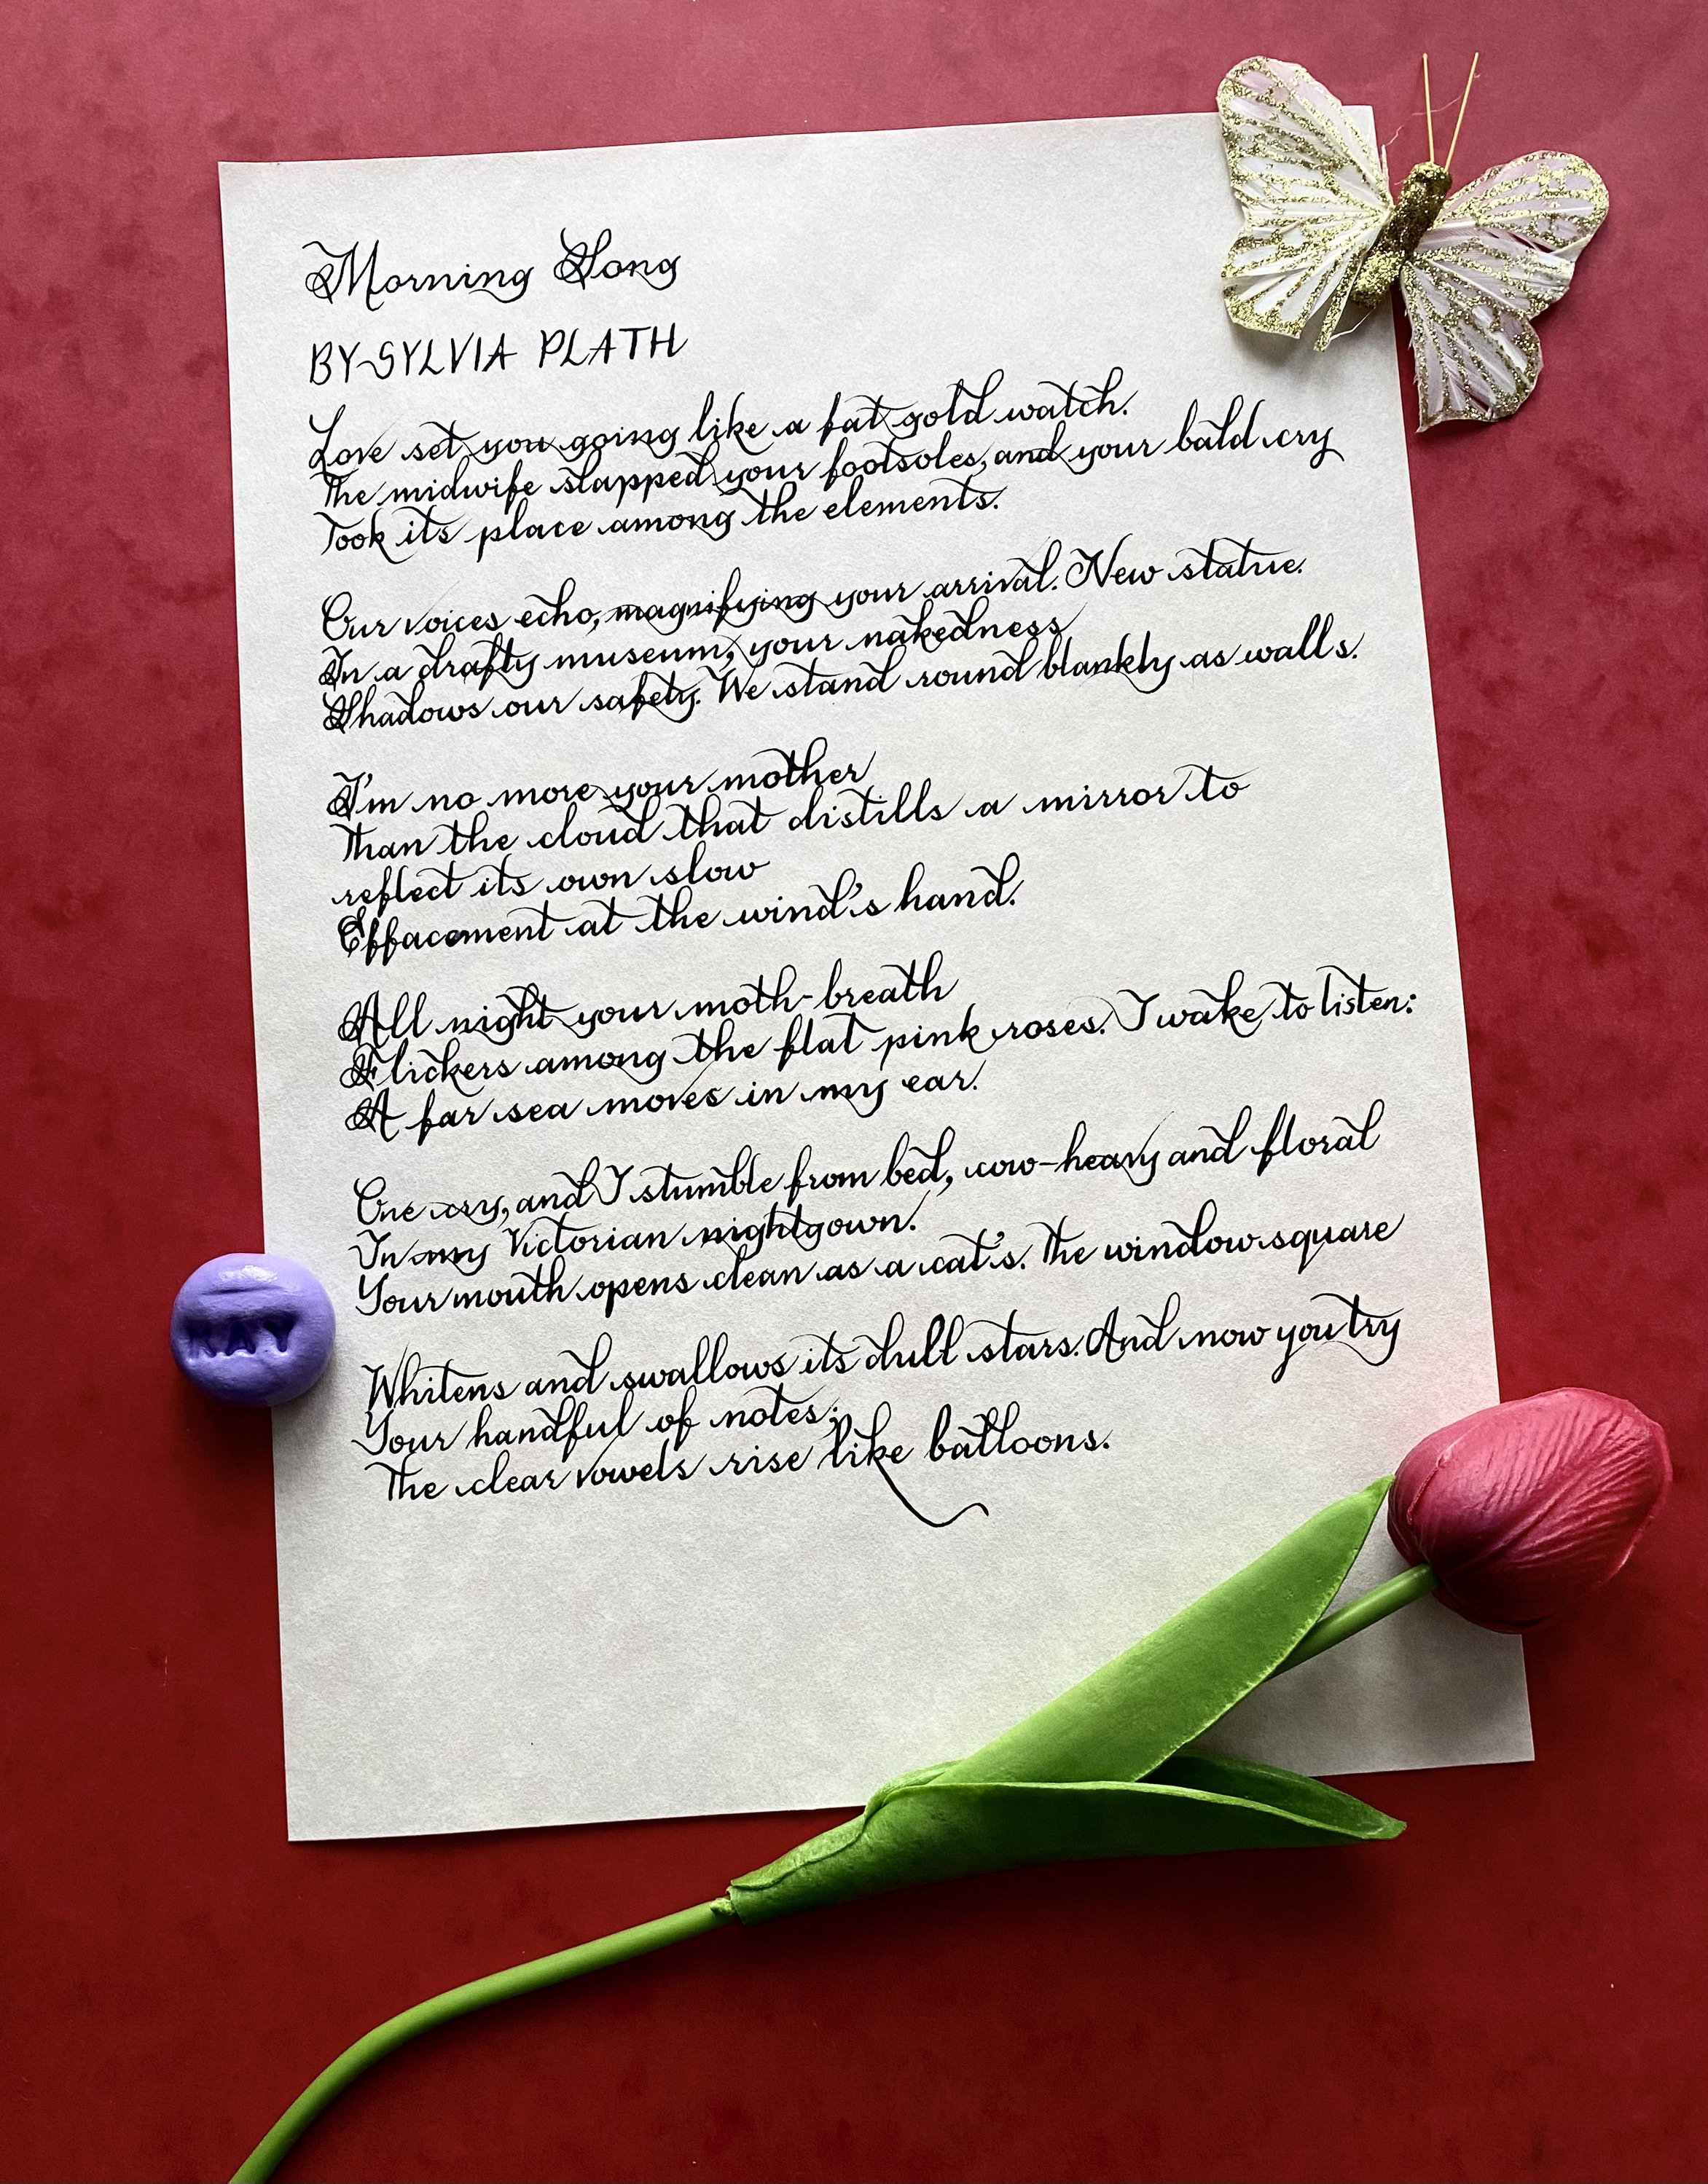 Morning Song
BY SYLVIA PLATH
Love set you going like a fat gold watch.
The midwife slapped your footsoles, and your bald cry
Took its place among the elements.
Our voices echo, magnifying your arrival. New statue.
In a drafty museum, your nakedness
Shadows our safety. We stand round blankly as walls.
I'm no more your mother
Than the cloud that distills a mirror to
reflect its own slow
Effacement at the wind's hand.
All night your moth-breath
Flickers among the flat pink roses. I wake to listen:
A far sea moves in my ear.
One cry, and I stumble from bed, cow-heavy and floral
In my Victorian nightgown.
Your mouth opens clean as a cat's. The window square
Whitens and swallows its dull stars. And now you try
Your handful of notes;
The clear vowels rise like balloons.
RAY